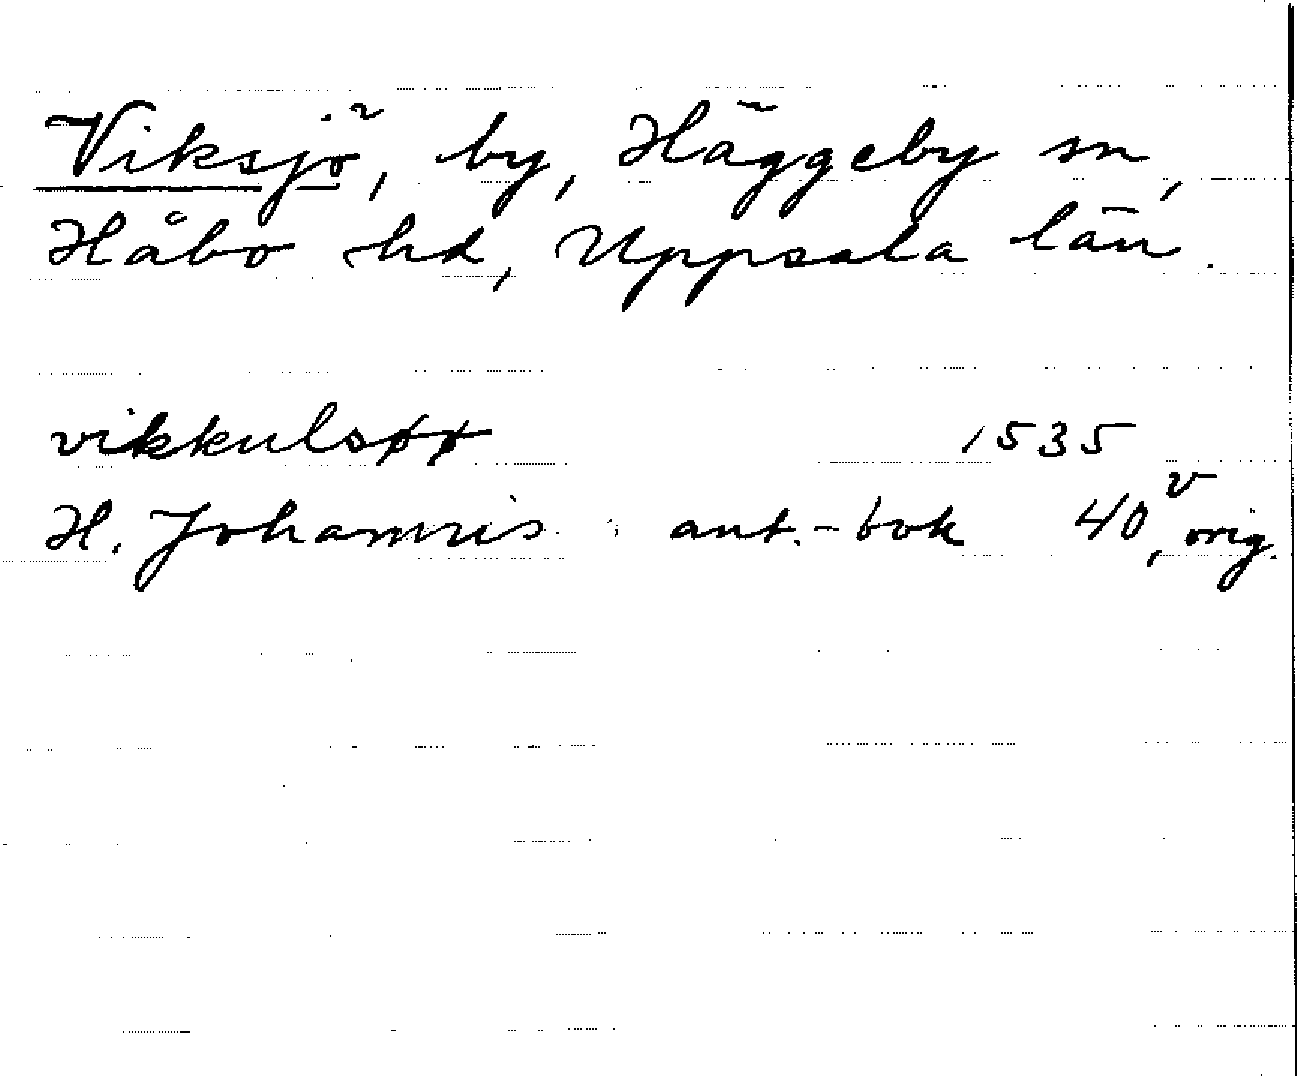 Viksjö, by, Häggeby sn,
Håbo hd, Uppsala län.
vikkulsøø 1535
H. Johannis ant.-bok 40v, orig.